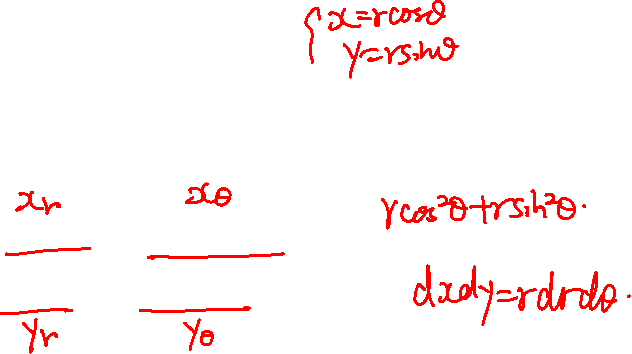 {x=rcosθ
y=rsinθ
x_r x_θ
rcos²θ+rsin²θ.
dxdy=rdrdθ.
y_r y_θ